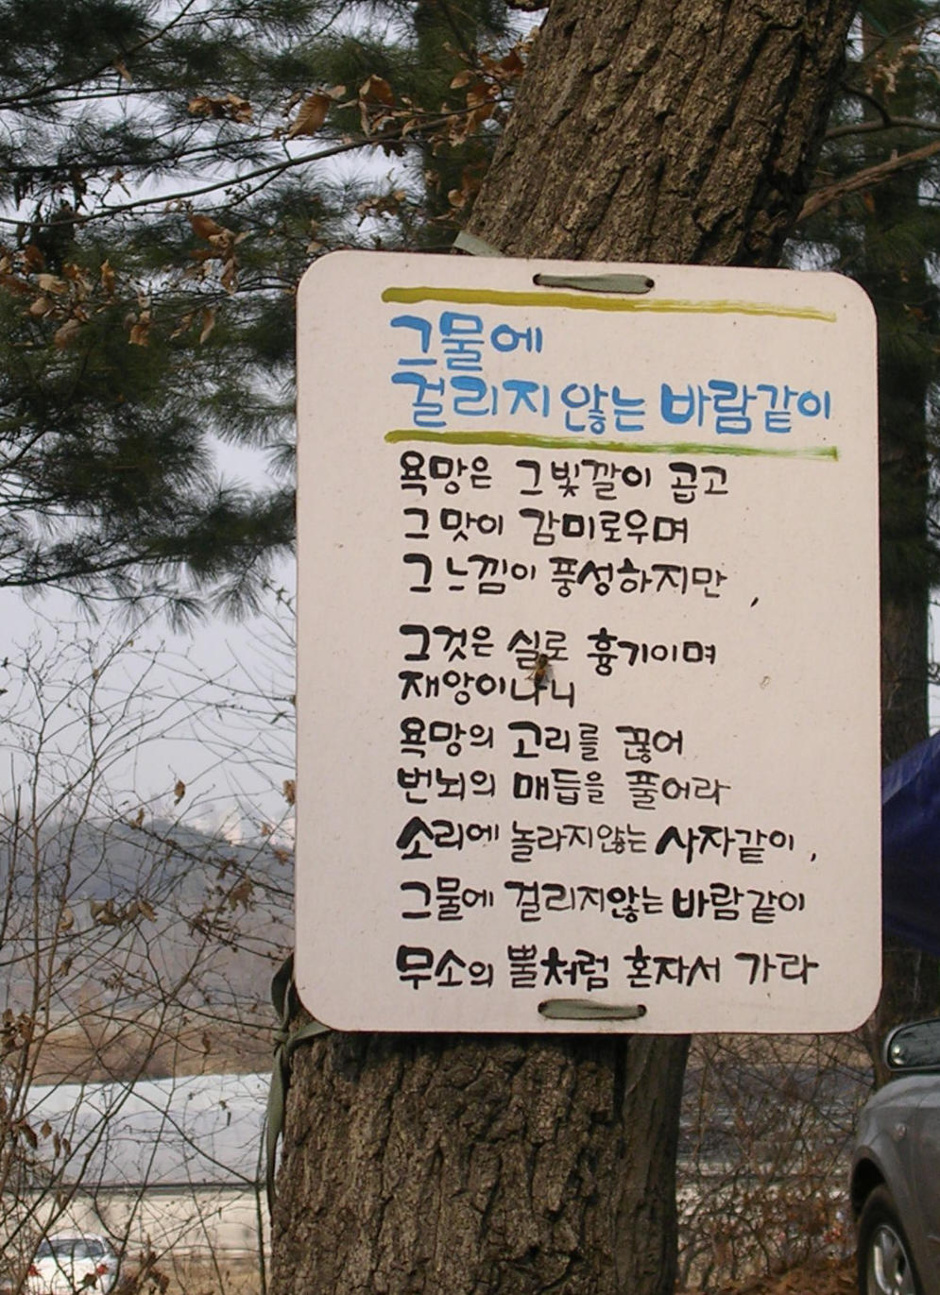 그물에
걸리지 않는 바람같이
욕망은 그 빛깔이 곱고
그 맛이 감미로우며
그 느낌이 풍성하지만,
그것은 실로 흉기이며
재앙이나니
욕망의 고리를 끊어
번뇌의 매듭을 풀어라
소리에 놀라지 않는 사자같이,
그물에 걸리지 않는 바람같이
무소의 뿔처럼 혼자서 가라